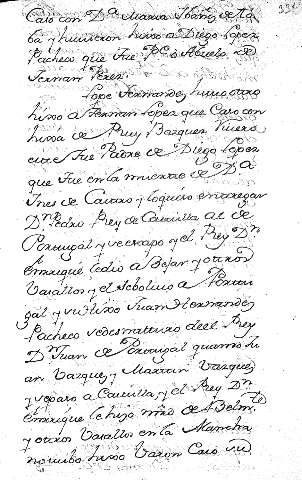 Caso con D.ª Maria Ibañez de
ba y huvieron hixo a Diego Lopez
Pacheco que fue Abuelo de
Fernan Perez.
Lope Fernandez huvo otro
hixo a Fernan Lopez que Caso con
hixa de Ruy Vazquez
este fue Padre de Diego Lopez
que fue en la muerte de D.ª
Ines de Castro y lo quiso entregar
D.n Pedro Rey de Castilla al de
Portugal y se escapo y el Rey D.n
Enrrique le dio a Bejar y otros
Vasallos y el se bolvio a Portu
gal y su hixo Juan Fernandez
Pacheco se desnaturo de el Rey
D.n Juan de Portugal quando
an Vazquez y Martin Vazquez
y se paso a Castilla, y el Rey D.n
Enrrique le hizo mrd de Belm.te
y otros Vasallos en la Mancha
no hubo hixo Varon Caso su